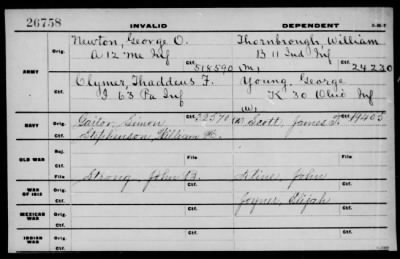 26758 INVALID DEPENDENT
ARMY
Orig. Newton, George O. Thornbrough, William
A 12 Me Inf B 11 Ind Inf
Ctf. 518590 (M) Ctf. 24230
Clymer, Thaddeus F. Young, George
I 63 Pa Inf K 30 Ohio Inf
(W)
NAVY Orig. Gailor, Simon 32570 (W) Scott, James T. 19405
Ctf. Stephenson, William H.
OLD WAR Rej.
Ctf. File File
WAR OF 1812 Orig. Strong, John B. Cline, John
Ctf. Ctf. Joyner, Elijah
MEXICAN WAR Orig.
Ctf. Ctf.
INDIAN WAR Orig.
Ctf. Ctf.